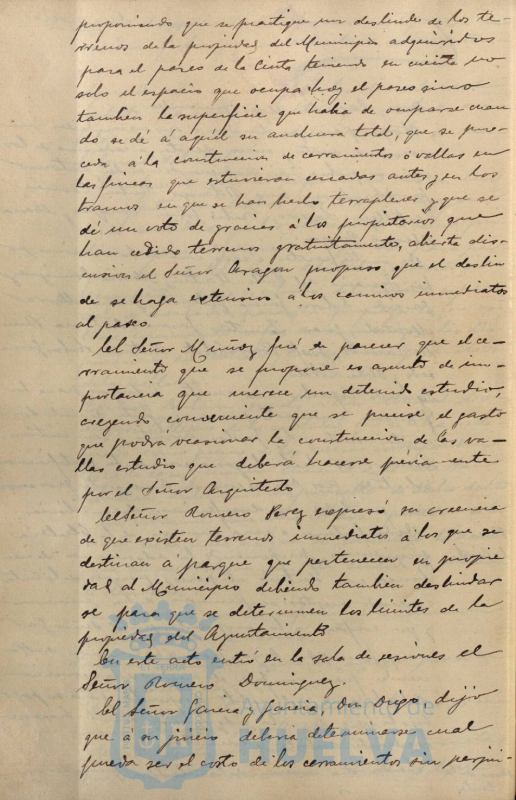 proponiendo que se practique un deslinde de los te-
rrenos de la propiedad del Municipio adquiridos
para el paseo de la Cinta teniendo en cuenta no
solo el espacio que ocupa hoy el paseo sino
tambien la superficie que habia de ocuparse cuan
do se dé á aquél su anchura total, que se pro-
ceda á la construccion de cerramientos ó vallas en
las fincas que estuvieran cercadas antes y en los
tramos en que se han hecho terraplenes y que se
dé un voto de gracias á los propietarios que
han cedido terrenos gratuitamente, abierta dis-
cusion el Señor Aragon propuso que el deslin
de se haga extensivo á los caminos inmediatos
al paseo.
El Señor Muñoz fué de parecer que el ce-
rramiento que se propone es asunto de im-
portancia que merece un detenido estudio,
creyendo conveniente que se precise el gasto
que podrá ocasionar la construccion de las va-
llas estudio que deberá hacerse préviamente
por el Señor Arquitecto
El Señor Romero Perez expresó su creencia
de que existen terrenos inmediatos á los que se
destinan á parque que pertenecen en propie
dad al Municipio debiendo tambien deslindar
se para que se determinen los limites de la
propiedad del Ayuntamiento
En este acto entró en la sala de sesiones el
Señor Romero Dominguez.
El Señor Garcia y Garcia, Don Diego, dijo
que á su juicio deberia determinarse cual
pueda ser el costo de los cerramientos sin perjui-
Ayuntamiento de
HUELVA